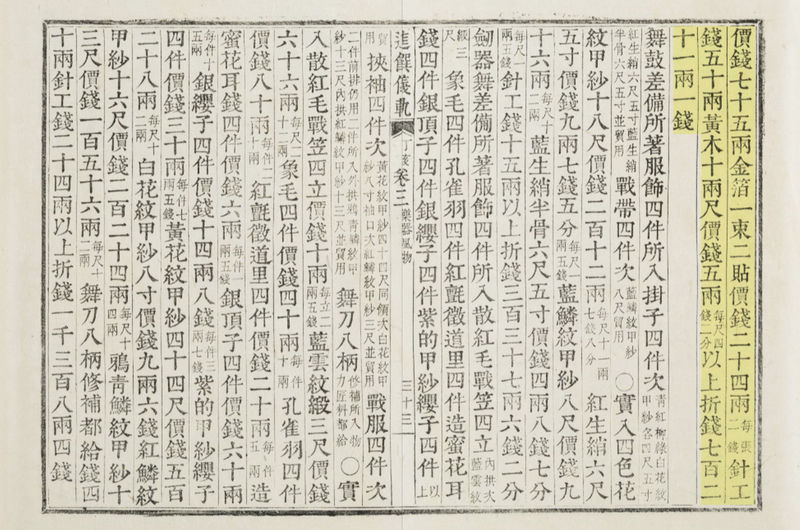 價錢七十五兩金箔一束二貼價錢二十四兩每張二錢針工
錢五十兩黃木十兩尺價錢五兩每尺四錢二分以上折錢七百二
十一兩一錢
舞鼓差備所著服飾四件所入掛子四件次靑紅柳綠白花紋甲紗各四尺五寸
紅生綃六尺五寸藍生綃半骨六尺五寸並貿用戰帶四件次藍禱紋甲紗八尺貿用○實入四色花
紋甲紗十八尺價錢二百十二兩每尺十一兩七錢八分紅生綃六尺
五寸價錢九兩七錢五分每尺一兩五錢藍鱗紋甲紗八尺價錢九
十六兩每尺十二兩藍生綃半骨六尺五寸價錢四兩八錢七分
每尺一兩五錢針工錢十五兩以上折錢三百三十七兩六錢二分
劒器舞差備所著服飾四件所入散紅毛戰笠四立內拱次藍雲紋
緞三尺象毛四件孔雀羽四件紅氈徵道里四件造蜜花耳
錢四件銀頂子四件銀纓子四件紫的甲紗纓子四件以上
進饌儀軌 丁亥 卷三 樂器風物 三十三
貿用挾袖四件次黃花紋甲紗四十四尺同領次白花紋甲紗八寸袖口次紅鱗紋甲紗三尺並貿用戰服四件次
二件前排仍用二件所入外拱鴉靑鱗紋甲紗十三尺內拱紅鱗紋甲紗十三尺並貿用舞刀八柄修補所入物力匠料都給○實
入散紅毛戰笠四立價錢十兩每立二兩五錢藍雲紋緞三尺價錢
六十六兩每尺二十二兩象毛四件價錢四十兩每件十兩孔雀羽四件
價錢八十兩每件二十兩紅氈徵道里四件價錢二十兩每件五兩造
蜜花耳錢四件價錢六兩每件一兩五錢銀頂子四件價錢六十兩
每件十五兩銀纓子四件價錢十四兩八錢每件三兩七錢紫的甲紗纓子
四件價錢三十兩每件七兩五錢黃花紋甲紗四十四尺價錢五百
二十八兩每尺十二兩白花紋甲紗八寸價錢九兩六錢紅鱗紋
甲紗十六尺價錢二百二十四兩每尺十四兩鴉靑鱗紋甲紗十
三尺價錢一百五十六兩每尺十二兩舞刀八柄修補都給錢四
十兩針工錢二十四兩以上折錢一千三百八兩四錢